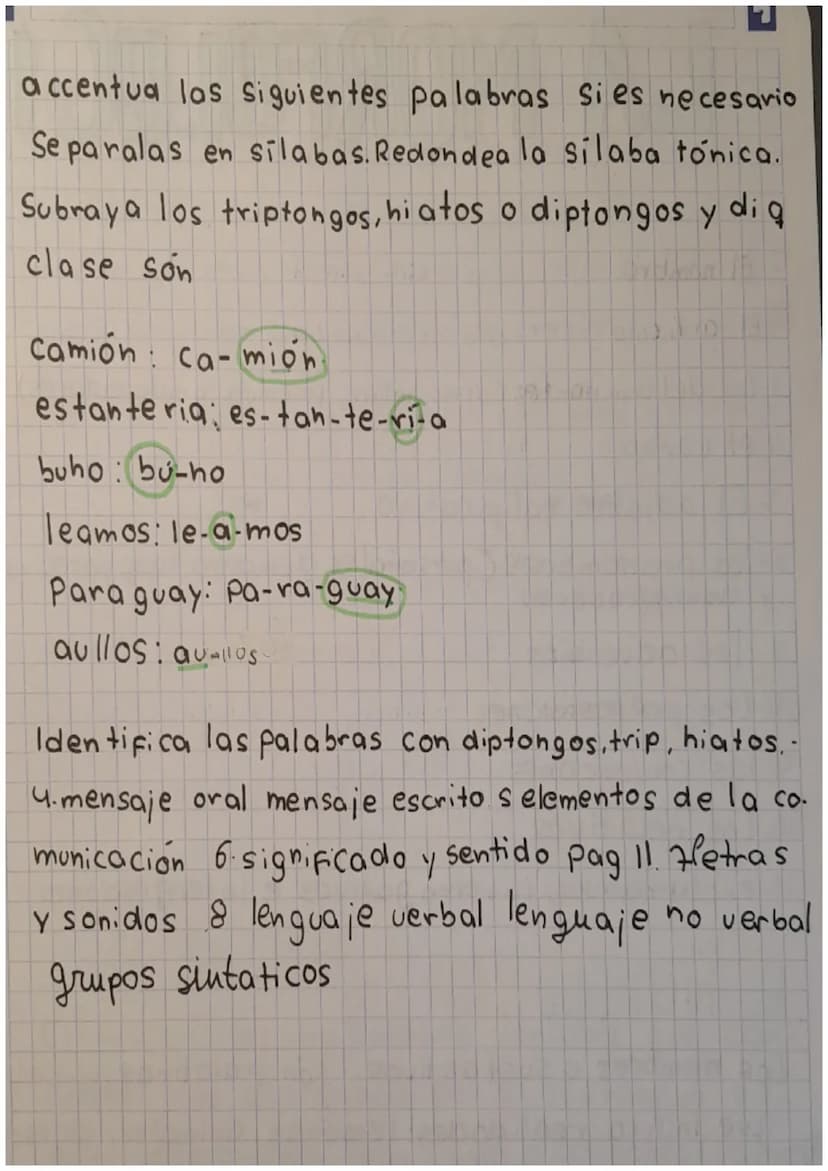 accentua las siguientes palabras si es necesario
Separalas en sílabas. Redondea la sílaba tónica.
Subraya los triptongos, hiatos o diptongos y di q
clase són
camión: ca-mión
estanteria: es-tan-te-rí-a
buho: bú-ho
leamos: le-a-mos
Paraguay: pa-ra-guay
aullos: au-llos
Identifica las palabras con diptongos, trip, hiatos.-
4.mensaje oral mensaje escrito 5 elementos de la co-
municación 6.significado y sentido pag 11. 7letras
y sonidos 8 lenguaje verbal lenguaje no verbal
grupos sintaticos